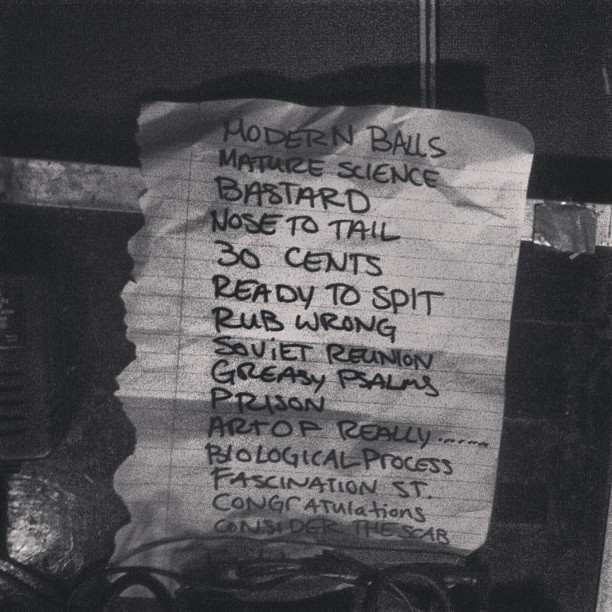 MODERN BALLS
MATURE SCIENCE
BASTARD
NOSE TO TAIL
30 CENTS
READY TO SPIT
RUB WRONG
SOVIET REUNION
GREASY PSALMS
PRISON
ART OF REALLY......
BIOLOGICAL PROCESS
FASCINATION ST.
CONGRATulations
CONSIDER THE SCAB